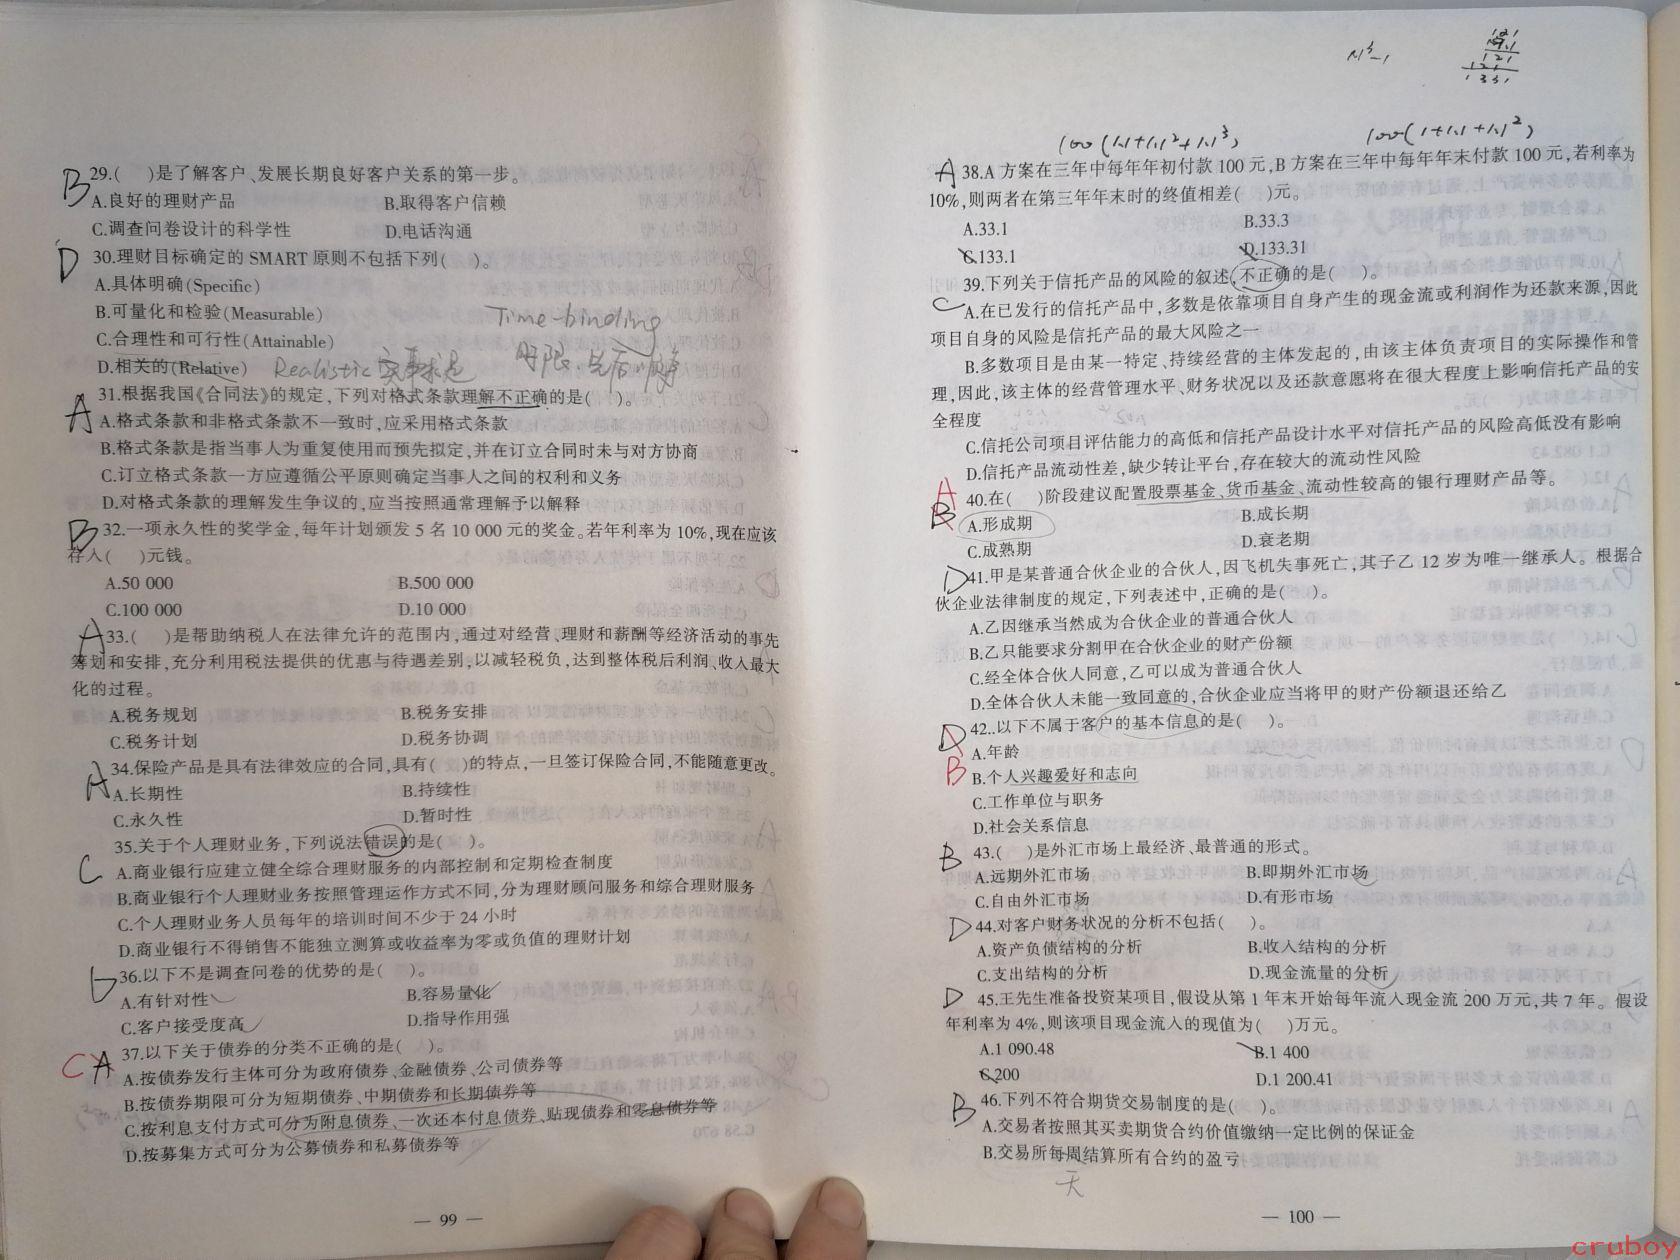 B 29.(　)是了解客户、发展长期良好客户关系的第一步。
A.良好的理财产品　B.取得客户信赖
C.调查问卷设计的科学性　D.电话沟通
D 30.理财目标确定的 SMART 原则不包括下列(　)。
A.具体明确(Specific)
B.可量化和检验(Measurable)
Time-binding
C.合理性和可行性(Attainable)
D.相关的(Relative) Realistic 实事求是 时限、先后顺序
31.根据我国《合同法》的规定,下列对格式条款理解不正确的是(　)。
A A.格式条款和非格式条款不一致时,应采用格式条款
B.格式条款是指当事人为重复使用而预先拟定,并在订立合同时未与对方协商
C.订立格式条款一方应遵循公平原则确定当事人之间的权利和义务
D.对格式条款的理解发生争议的,应当按照通常理解予以解释
B 32.一项永久性的奖学金,每年计划颁发 5 名 10 000 元的奖金。若年利率为 10%,现在应该
存入(　)元钱。
A.50 000　B.500 000
C.100 000　D.10 000
A 33.(　)是帮助纳税人在法律允许的范围内,通过对经营、理财和薪酬等经济活动的事先
筹划和安排,充分利用税法提供的优惠与待遇差别,以减轻税负,达到整体税后利润、收入最大
化的过程。
A.税务规划　B.税务安排
C.税务计划　D.税务协调
A 34.保险产品是具有法律效应的合同,具有(　)的特点,一旦签订保险合同,不能随意更改。
A.长期性　B.持续性
C.永久性　D.暂时性
35.关于个人理财业务,下列说法错误的是(　)。
C A.商业银行应建立健全综合理财服务的内部控制和定期检查制度
B.商业银行个人理财业务按照管理运作方式不同,分为理财顾问服务和综合理财服务
C.个人理财业务人员每年的培训时间不少于 24 小时
D.商业银行不得销售不能独立测算或收益率为零或负值的理财计划
36.以下不是调查问卷的优势的是(　)。
A.有针对性　B.容易量化
C.客户接受度高　D.指导作用强
C A 37.以下关于债券的分类不正确的是(　)。
A.按债券发行主体可分为政府债券、金融债券、公司债券等
B.按债券期限可分为短期债券、中期债券和长期债券等
C.按利息支付方式可分为附息债券、一次还本付息债券、贴现债券和零息债券等
D.按募集方式可分为公募债券和私募债券等
— 99 —
121
1331
100(1.1+1.1²+1.1³)　100(1+1.1+1.1²)
A 38.A 方案在三年中每年年初付款 100 元,B 方案在三年中每年年末付款 100 元,若利率为
10%,则两者在第三年年末时的终值相差(　)元。
A.33.1　B.33.3
C.133.1　D.133.31
39.下列关于信托产品的风险的叙述,不正确的是(　)。
C A.在已发行的信托产品中,多数是依靠项目自身产生的现金流或利润作为还款来源,因此
项目自身的风险是信托产品的最大风险之一
B.多数项目是由某一特定、持续经营的主体发起的,由该主体负责项目的实际操作和管
理,因此,该主体的经营管理水平、财务状况以及还款意愿将在很大程度上影响信托产品的安
全程度
C.信托公司项目评估能力的高低和信托产品设计水平对信托产品的风险高低没有影响
D.信托产品流动性差,缺少转让平台,存在较大的流动性风险
A 40.在(　)阶段建议配置股票基金、货币基金、流动性较高的银行理财产品等。
B A.形成期　B.成长期
C.成熟期　D.衰老期
D 41.甲是某普通合伙企业的合伙人,因飞机失事死亡,其子乙 12 岁为唯一继承人。根据合
伙企业法律制度的规定,下列表述中,正确的是(　)。
A.乙因继承当然成为合伙企业的普通合伙人
B.乙只能要求分割甲在合伙企业的财产份额
C.经全体合伙人同意,乙可以成为普通合伙人
D.全体合伙人未能一致同意的,合伙企业应当将甲的财产份额退还给乙
D 42..以下不属于客户的基本信息的是(　)。
A.年龄
B B.个人兴趣爱好和志向
C.工作单位与职务
D.社会关系信息
B 43.(　)是外汇市场上最经济、最普通的形式。
A.远期外汇市场　B.即期外汇市场
C.自由外汇市场　D.有形市场
D 44.对客户财务状况的分析不包括(　)。
A.资产负债结构的分析　B.收入结构的分析
C.支出结构的分析　D.现金流量的分析
D 45.王先生准备投资某项目,假设从第 1 年末开始每年流入现金流 200 万元,共 7 年。假设
年利率为 4%,则该项目现金流入的现值为(　)万元。
A.1 090.48　B.1 400
C.200　D.1 200.41
B 46.下列不符合期货交易制度的是(　)。
A.交易者按照其买卖期货合约价值缴纳一定比例的保证金
B.交易所每周结算所有合约的盈亏
天
— 100 —
cruboy